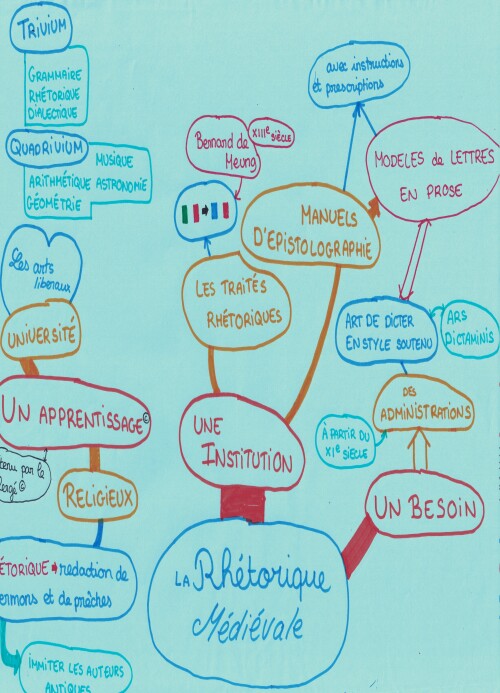 TRIVIUM
GRAMMAIRE
RHÉTORIQUE
DIALECTIQUE
QUADRIVIUM
MUSIQUE
ARITHMÉTIQUE ASTRONOMIE
GÉOMÉTRIE
Les arts
libéraux
UNIVERSITÉ
UN APPRENTISSAGE ©
tenu par le
lergé ©
RELIGIEUX
ÉTORIQUE → redaction de
ermons et de prêches
IMMITER LES AUTEURS
ANTIQUES
avec instructions
et prescriptions
XIIIe SIÈCLE
Bernand de
Meung
MODELES de LETTRES
EN PROSE
MANUELS
D'EPISTOLOGRAPHIE
LES TRAITÉS
RHÉTORIQUES
ART DE DICTER
EN STYLE SOUTENU
ARS
DICTAMINIS
DES
ADMINISTRATIONS
À PARTIR DU
XIe SIÈCLE
UNE
INSTITUTION
UN BESOIN
LA Rhétorique
Médiévale